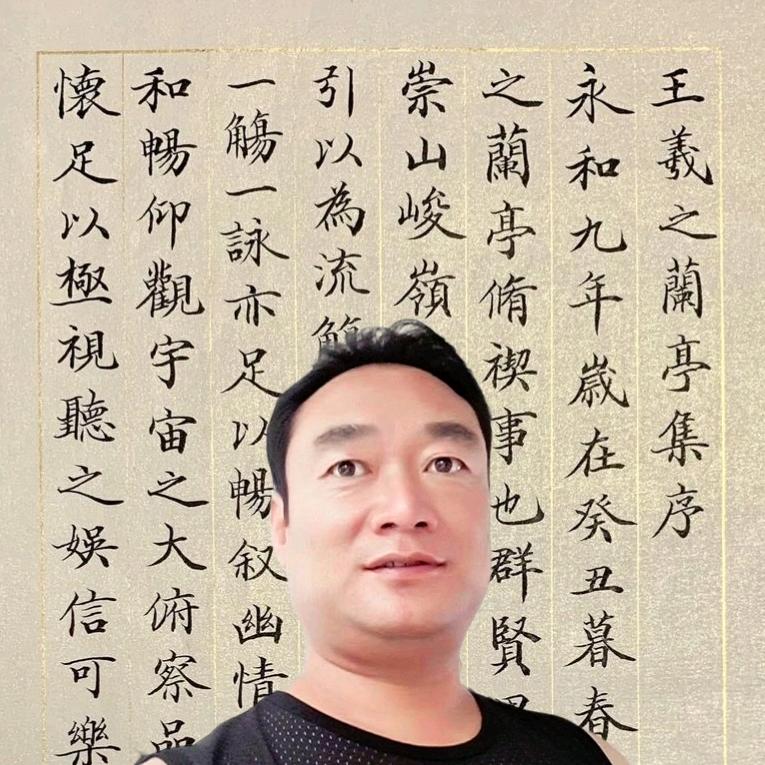 王羲之蘭亭集序
永和九年歲在癸丑暮春
之蘭亭脩禊事也群賢
崇山峻嶺
引以為流觴
一觴一詠亦足以暢叙幽情
和暢仰觀宇宙之大俯察品
懷足以極視聽之娛信可樂